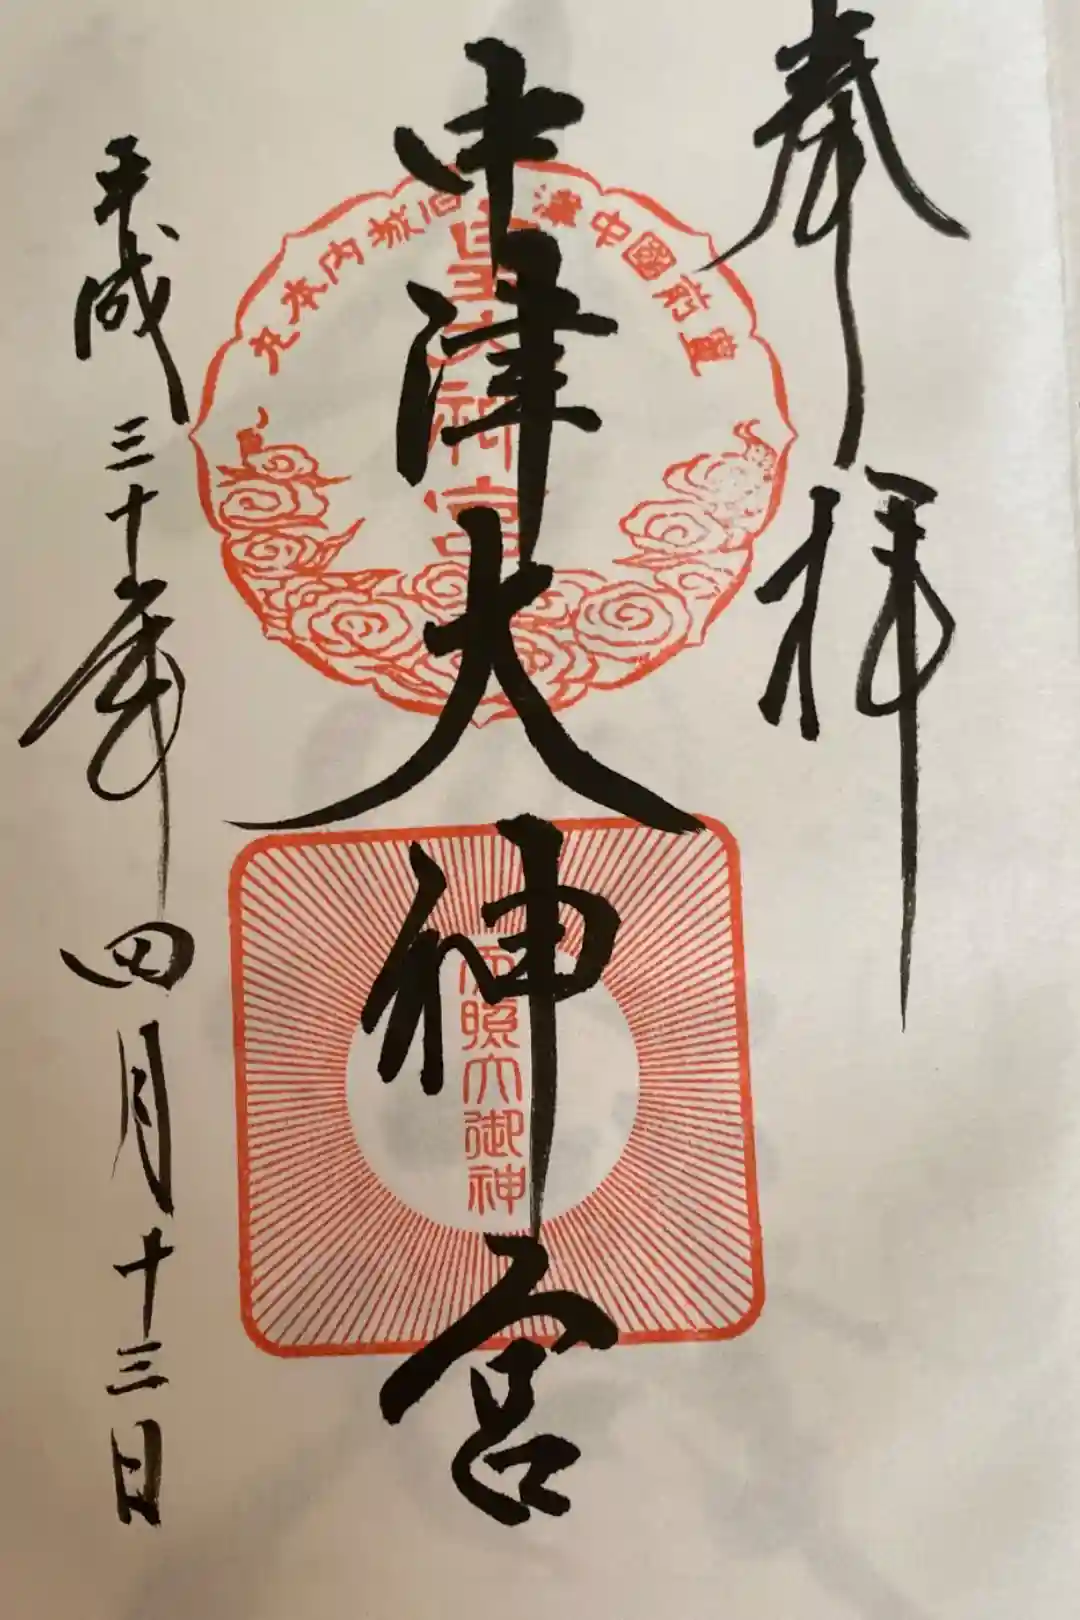 奉拝
中津大神宮
平成三十年四月十三日
豊前國中津
城内本丸
天照大御神